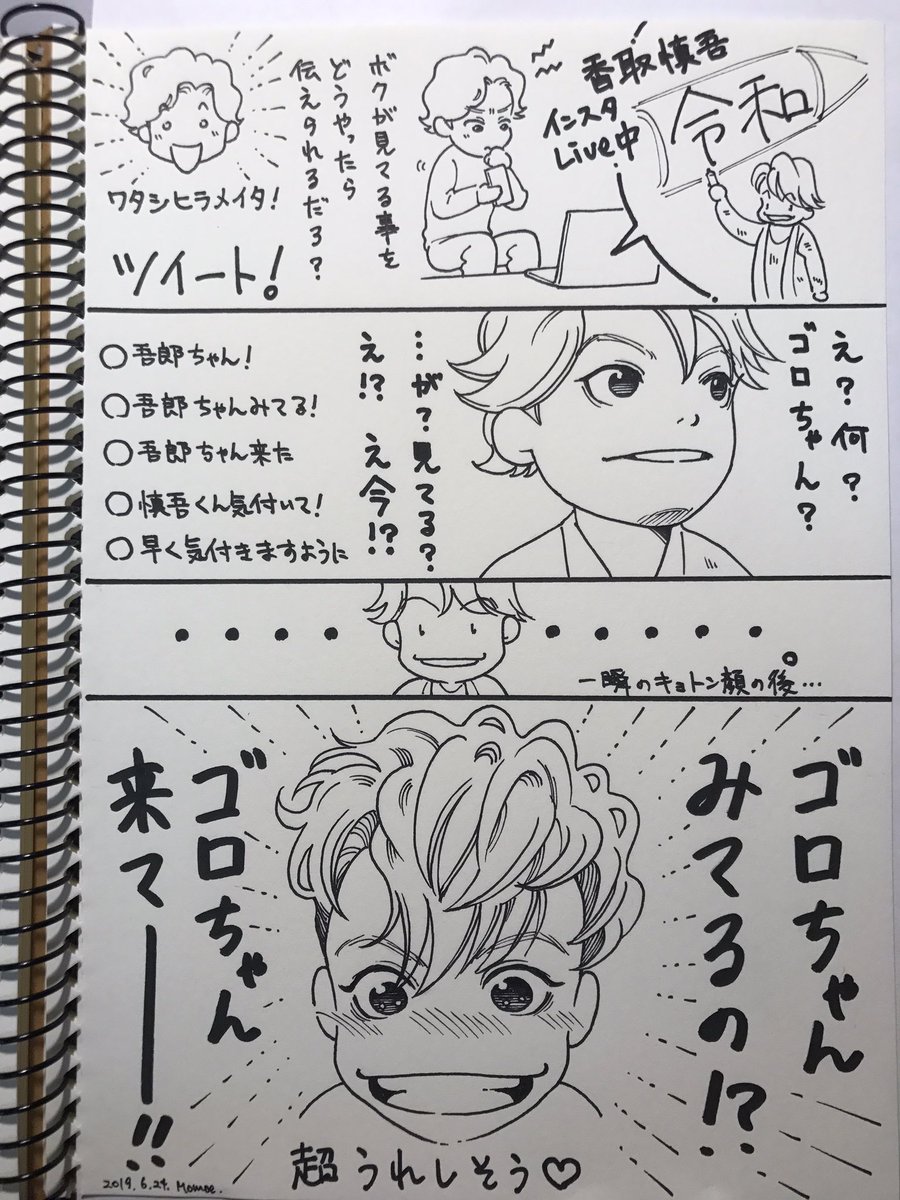 香取慎吾
インスタ
Live中
令和
ボクが見てる事を
どうやったら
伝えられるだろ?
ワタシヒラメイタ!
ツイート!
え?何?
ゴロちゃん?
…が?見てる?
え!? え今!?
○吾郎ちゃん!
○吾郎ちゃんみてる!
○吾郎ちゃん来た
○慎吾くん気付いて!
○早く気付きますように
・・・・・・・・・。
一瞬のキョトン顔の後…
ゴロちゃん
みてるの!?
ゴロちゃん
来てー!!
超うれしそう♡
2019.6.24. Momoe.